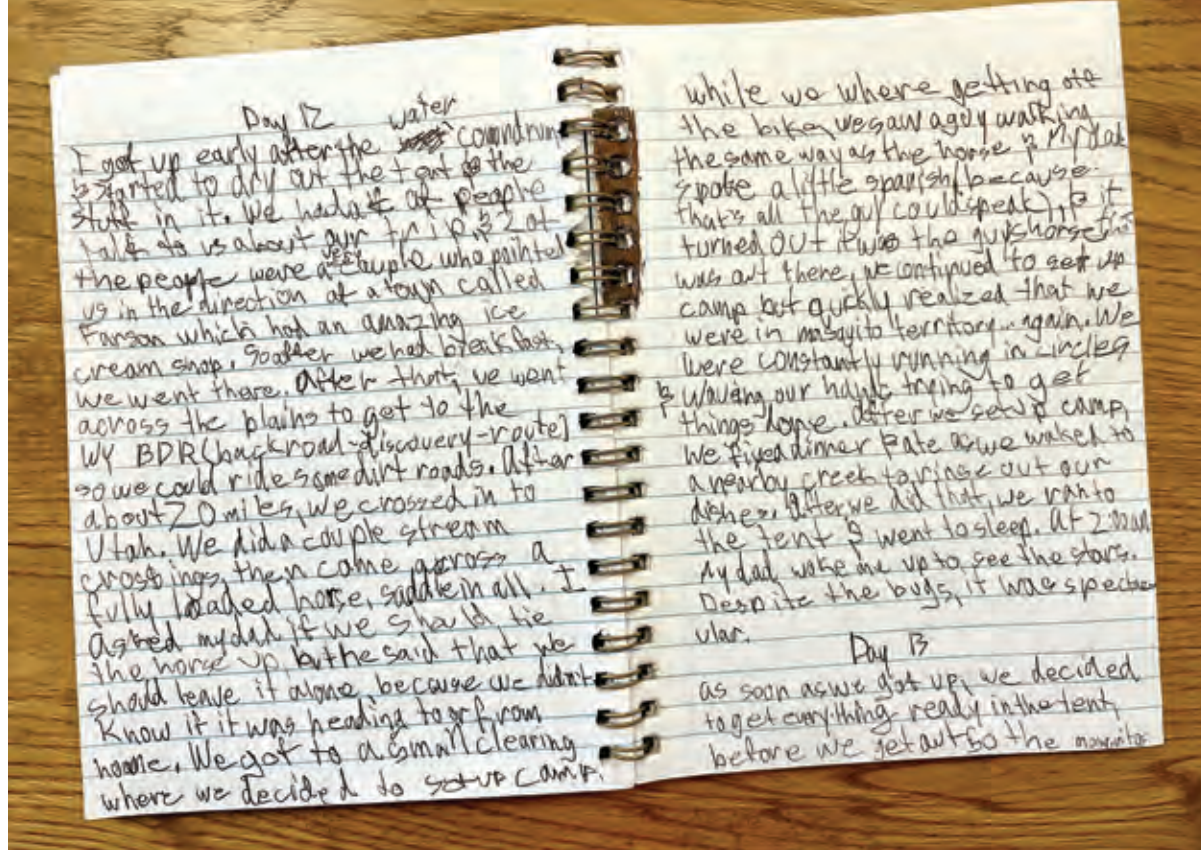 Day 12
water
I got up early after the conundrum
& started to dry out the tent & the
stuff in it. We had a lot of people
talk to us about our trip, & 2 of
the people were a couple who pointed
us in the direction of a town called
Farson which had an amazing ice
cream shop. So after we had breakfast,
we went there. After that, we went
across the plains to get to the
WY BDR (backroad-discovery-route)
so we could ride some dirt roads. After
about 20 miles, we crossed in to
Utah. We did a couple stream
crossings, then came across a
fully loaded horse, saddle in all. I
asked my dad if we should tie
the horse up, but he said that we
should leave it alone, because we didn't
know if it was heading to or from
home. We got to a small clearing
where we decided to set up camp.
while we where getting off
the bike, we saw a guy walking
the same way as the horse & My dad
spoke a little spanish (because
that's all the guy could speak), & it
turned out it was the guys horse
was out there, we continued to set up
camp but quickly realized that we
were in mosqito territory... again. We
were constantly running in circles
& waving our hands trying to get
things done. After we set up camp,
we fixed dinner & ate as we walked to
a nearby creek to rinse out our
dishes. After we did that, we ran to
the tent & went to sleep. At 2:00 am
My dad woke me up to see the stars.
Despite the bugs, it was spectac
ular.
Day 13
as soon as we got up, we decided
to get everything ready in the tent,
before we get out so the